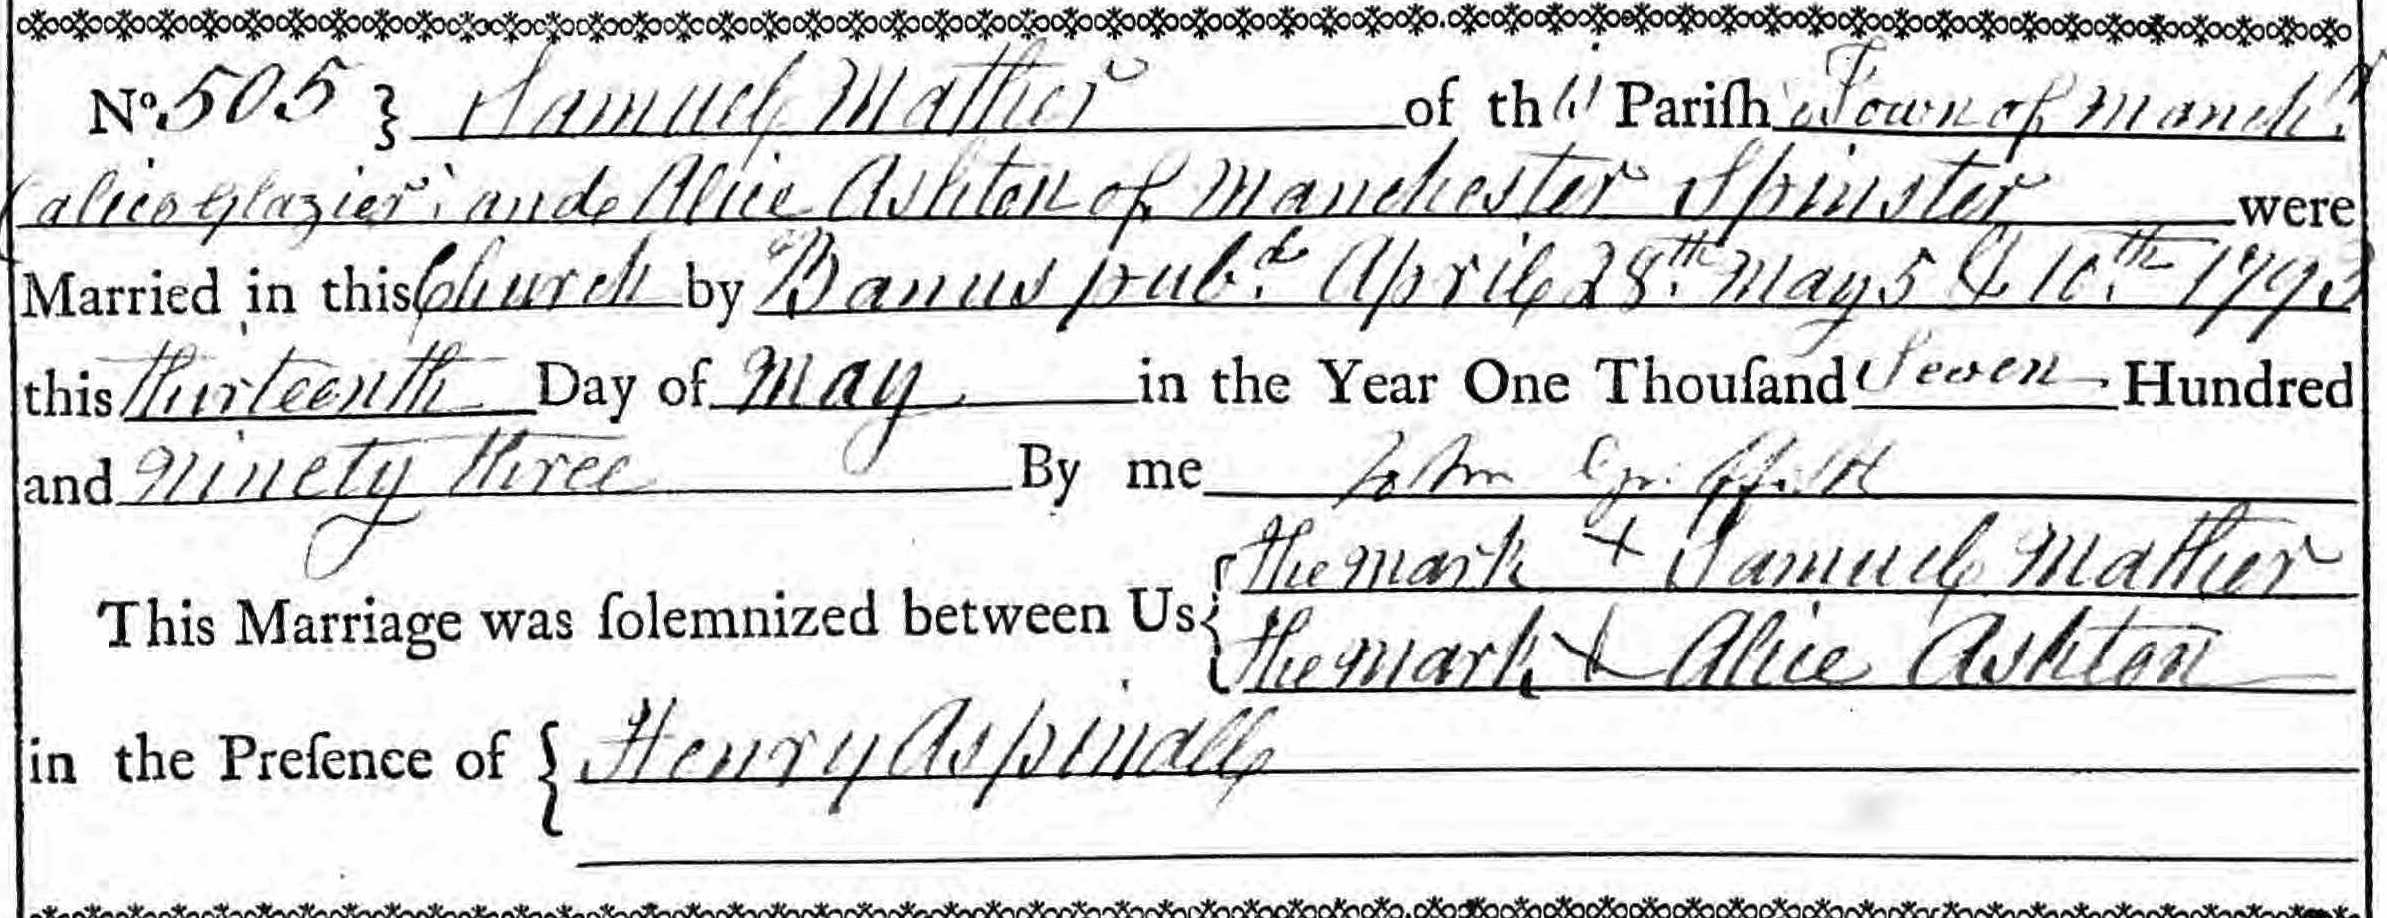 No. 505 } Samuel Mather of this Pariſh & Town of Manchr.
Calico Glazier and Alice Ashton of Manchester Spinster were
Married in this Church by Banns pub.d April 28th. May 5 & 10th. 1793
this thirteenth Day of May in the Year One Thouſand Seven Hundred
and Ninety three By me John Griffith
This Marriage was ſolemnized between Us { the mark + Samuel Mather
the mark + Alice Ashton
in the Preſence of { Henry Aspinall